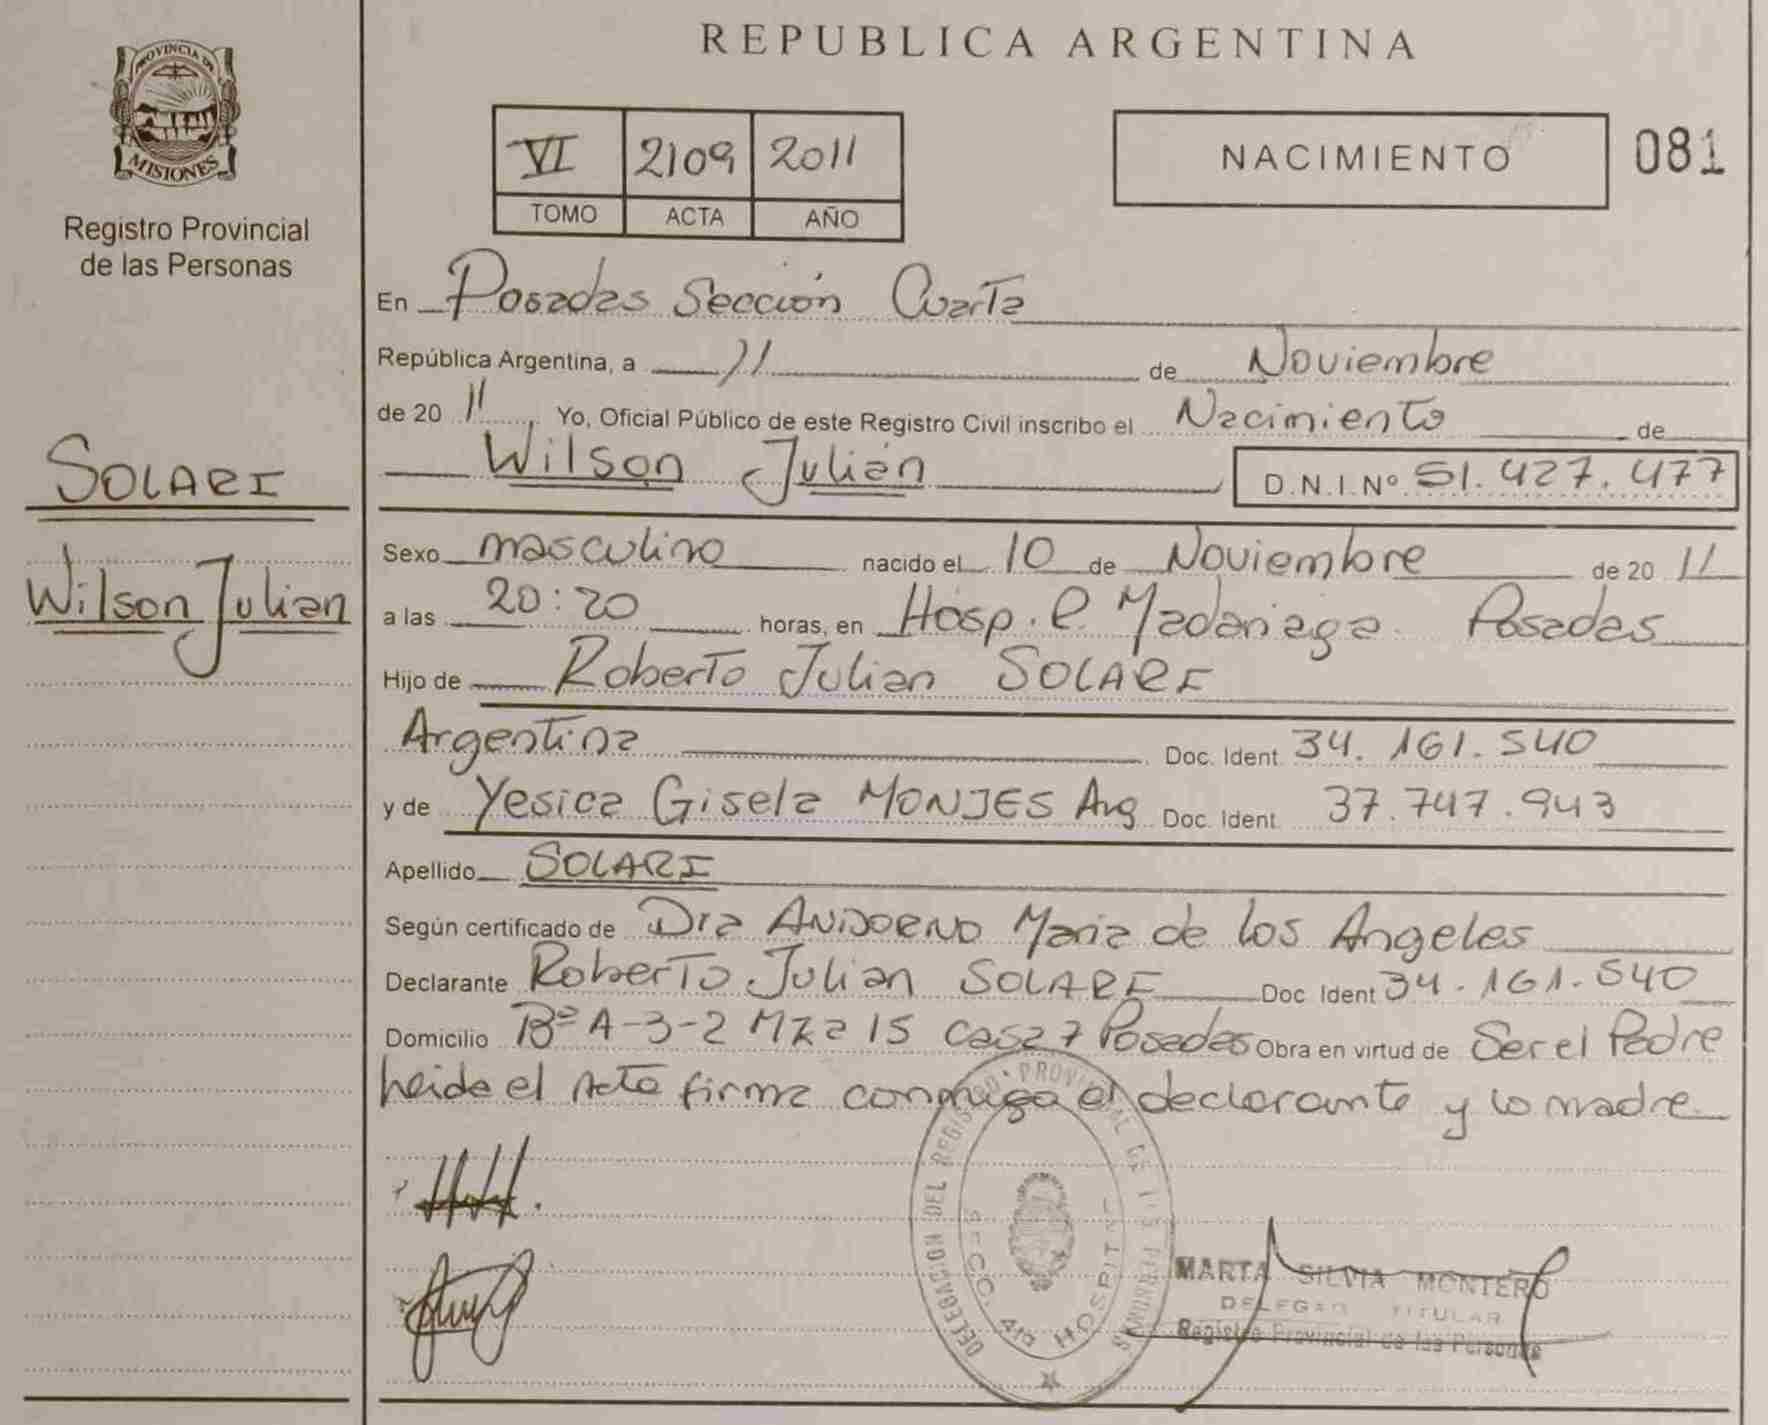 PROVINCIA DE
MISIONES
Registro Provincial
de las Personas
SOLARI
Wilson Julian
REPUBLICA ARGENTINA
VI 2109 2011
TOMO ACTA AÑO
NACIMIENTO 081
En Posadas Sección Cuarta
República Argentina, a 11 de Noviembre
de 20 11 Yo, Oficial Público de este Registro Civil inscribo el Nacimiento de
Wilson Julián D.N.I.Nº 51.427.477
Sexo masculino nacido el 10 de Noviembre de 20 11
a las 20:20 horas, en Hosp. R. Madariaga. Posadas
Hijo de Roberto Julian SOLARI
Argentina Doc. Ident. 34.161.540
y de Yesica Gisela MONJES Arg Doc. Ident. 37.747.943
Apellido SOLARI
Según certificado de Dra ANDORNO Maria de los Angeles
Declarante Roberto Julian SOLARI Doc Ident 34.161.540
Domicilio Bº A-3-2 Mza 15 casa 7 Posadas Obra en virtud de Ser el Padre
leida el Acta firma conmigo el declarante y la madre
DELEGACION DEL REGISTRO PROVINCIAL DE LAS PERSONAS
SECC. 4ta HOSPITAL
MARTA SILVIA MONTERO
DELEGADO TITULAR
Registro Provincial de las Personas